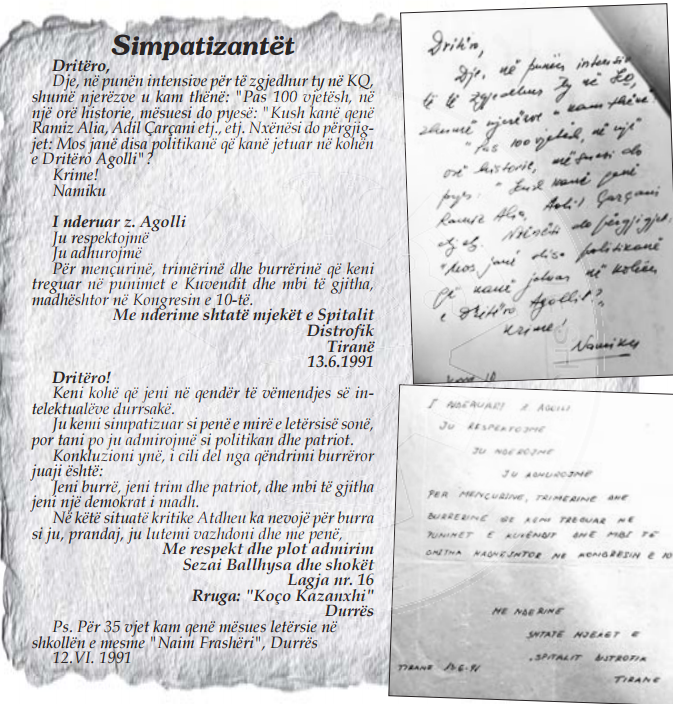 Simpatizantët
Dritëro,
Dje, në punën intensive për të zgjedhur ty në KQ,
shumë njerëzve u kam thënë: "Pas 100 vjetësh, në
një orë historie, mësuesi do pyesë: "Kush kanë qenë
Ramiz Alia, Adil Çarçani etj., etj. Nxënësi do përgjig-
jet: Mos janë disa politikanë që kanë jetuar në kohën
e Dritëro Agolli"?
Krime!
Namiku
I nderuar z. Agolli
Ju respektojmë
Ju adhurojmë
Për mençurinë, trimërinë dhe burrërinë që keni
treguar në punimet e Kuvendit dhe mbi të gjitha,
madhështor në Kongresin e 10-të.
Me nderime shtatë mjekët e Spitalit
Distrofik
Tiranë
13.6.1991
Dritëro!
Keni kohë që jeni në qendër të vëmendjes së in-
telektualëve durrsakë.
Ju kemi simpatizuar si penë e mirë e letërsisë sonë,
por tani po ju admirojmë si politikan dhe patriot.
Konkluzioni ynë, i cili del nga qëndrimi burrëror
juaji është:
Jeni burrë, jeni trim dhe patriot, dhe mbi të gjitha
jeni një demokrat i madh.
Në këtë situatë kritike Atdheu ka nevojë për burra
si ju, prandaj, ju lutemi vazhdoni dhe me penë,
Me respekt dhe plot admirim
Sezai Ballhysa dhe shokët
Lagja nr. 16
Rruga: "Koço Kazanxhi"
Durrës
Ps. Për 35 vjet kam qenë mësues letërsie në
shkollën e mesme "Naim Frashëri", Durrës
12.VI. 1991
Dritëro,
Dje, në punën intensive
të të zgjedhur ty në KQ,
shumë njerëzve u kam thënë:
"Pas 100 vjetësh, në një
orë historie, mësuesi do
pyes: "Kush kanë qenë
Ramiz Alia, Adil Çarçani
etj etj. Nxënësi do përgjigjet:
"Mos janë disa politikanë
që kanë jetuar në kohën
e Dritëro Agollit"?
Krime!
Namiku
I NDERUARI Z AGOLLI
JU RESPEKTOJMË
JU NDEROJMË
JU ADHUROJMË
PËR MENÇURINË, TRIMËRINË DHE
BURRËRINË QË KENI TREGUAR NË
PUNIMET E KUVENDIT DHE MBI TË
GJITHA MADHËSHTOR NË KONGRESIN E 10
ME NDERIME
SHTATË MJEKËT E
SPITALIT DISTROFIK
TIRANË 13-6-91
TIRANË